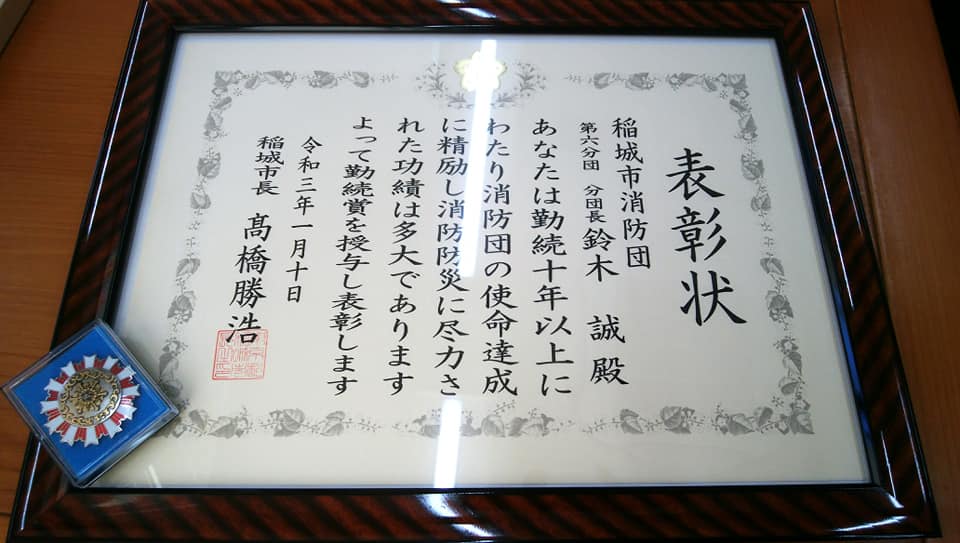 表彰状
稲城市消防団
第六分団 分団長 鈴木 誠 殿
あなたは勤続十年以上に
わたり消防団の使命達成
に精励し消防防災に尽力さ
れた功績は多大であります
よって勤続賞を授与し表彰します
令和三年一月十日
稲城市長 髙橋勝浩